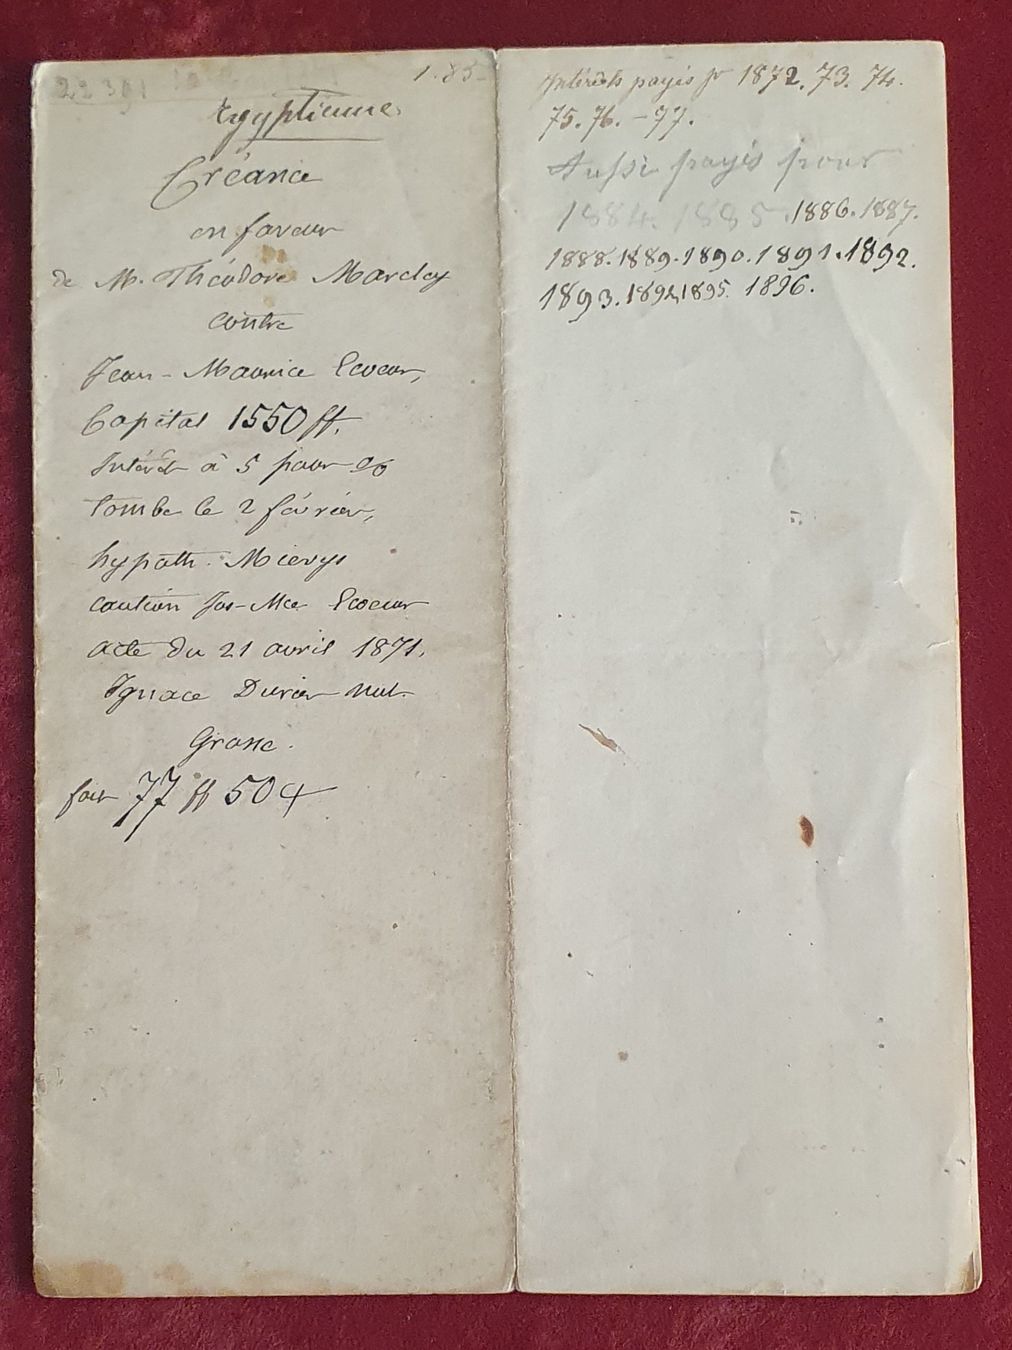 22391
1.85-
Egyptienne.
Créance
en faveur
de M. Théodore Marclay
contre
Jean-Maurice Ecoeur,
Capital 1550 ff.
Intérêt à 5 pour %
tombe le 2 février,
hypoth. Mierys
caution Jos-Mce Ecoeur
acte du 21 avril 1871.
Ignace Durier not.
Grosse.
fait 77 ff 50 c
Intérêts payés pr 1872. 73. 74.
75. 76. - 77.
Aussi payés pour
1884. 1885. 1886. 1887.
1888. 1889. 1890. 1891. 1892.
1893. 1894 1895. 1896.